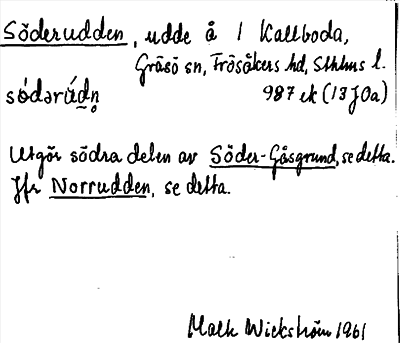 Söderudden, udde å 1 Kallboda,
Gräsö sn, Frösåkers hd, Sthlms l.
sǿdərʉ́dn̥ 987 ek (13J0a)
Utgör södra delen av Söder-Gåsgrund, se detta.
Jfr Norrudden, se detta.
Malk Wickström 1961